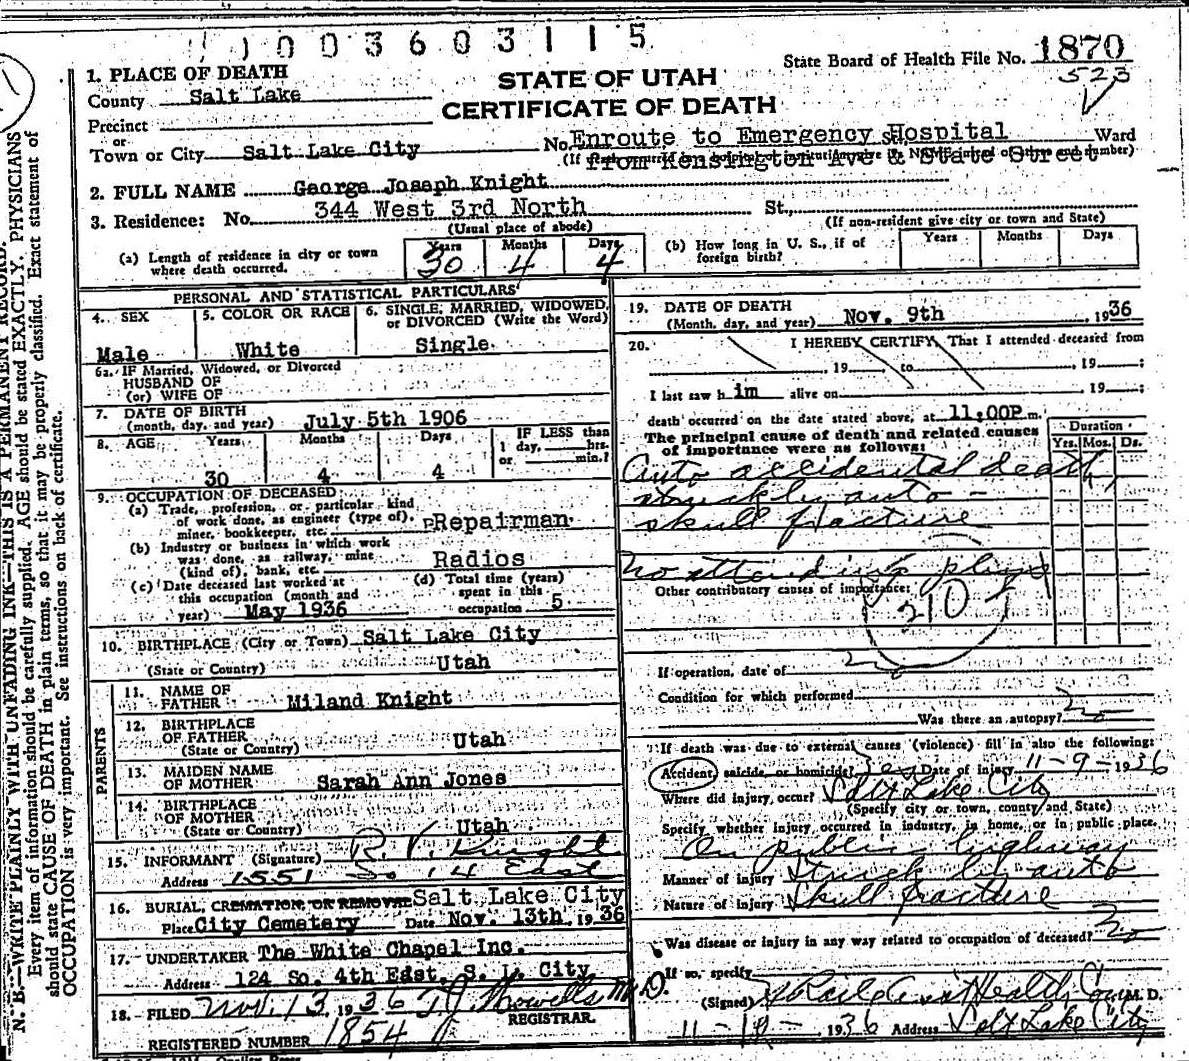 1003603115
State Board of Health File No. 1870
523
STATE OF UTAH
CERTIFICATE OF DEATH
1. PLACE OF DEATH
County Salt Lake
Precinct
or
Town or City Salt Lake City No. Enroute to Emergency Hospital St., Ward
from Kensington Ave & State Street
2. FULL NAME George Joseph Knight
3. Residence: No. 344 West 3rd North St.,
(Usual place of abode) (If non-resident give city or town and State)
(a) Length of residence in city or town where death occurred. Years 30 Months 4 Days 4
(b) How long in U. S., if of foreign birth? Years Months Days
PERSONAL AND STATISTICAL PARTICULARS
4. SEX Male
5. COLOR OR RACE White
6. SINGLE, MARRIED, WIDOWED, or DIVORCED (Write the Word) Single.
6a. IF Married, Widowed, or Divorced
HUSBAND OF
(or) WIFE OF
7. DATE OF BIRTH
(month, day, and year) July 5th 1906
8. AGE Years 30 Months 4 Days 4
IF LESS than
1 day, hrs.
or min.?
9. OCCUPATION OF DECEASED
(a) Trade, profession, or particular kind
of work done, as engineer (type of),
miner, bookkeeper, etc. Repairman
(b) Industry or business in which work
was done, as railway, mine
(kind of) bank, etc. Radios
(c) Date deceased last worked at
this occupation (month and
year) May 1936
(d) Total time (years)
spent in this
occupation 5
10. BIRTHPLACE (City or Town) Salt Lake City
(State or Country) Utah
PARENTS
11. NAME OF
FATHER Miland Knight
12. BIRTHPLACE
OF FATHER
(State or Country) Utah
13. MAIDEN NAME
OF MOTHER Sarah Ann Jones
14. BIRTHPLACE
OF MOTHER
(State or Country) Utah
15. INFORMANT (Signature) R. V. Knight
Address 1551 So 14 East
16. BURIAL, CREMATION, OR REMOVAL Salt Lake City
Place City Cemetery Date Nov. 13th, 1936
17. UNDERTAKER The White Chapel Inc.
Address 124 So. 4th East, S. L. City
18. FILED Nov. 13 1936 T J Howells M.D.
REGISTRAR.
REGISTERED NUMBER 1854
19. DATE OF DEATH
(Month, day, and year) Nov. 9th , 1936
20. I HEREBY CERTIFY, That I attended deceased from
, 19 to , 19 ;
I last saw him alive on , 19 ;
death occurred on the date stated above, at 11:00P m.
The principal cause of death and related causes
of importance were as follows:
Duration
Yrs. Mos. Ds.
Auto accidental death,
struck by auto -
skull fracture
No attending phys
Other contributory causes of importance:
210
If operation, date of
Condition for which performed
Was there an autopsy? no
If death was due to external causes (violence) fill in also the following:
Accident, suicide, or homicide? Yes Date of injury 11-9-1936
Where did injury occur? Salt Lake City
(Specify city or town, county and State)
Specify whether injury occurred in industry, in home, or in public place.
On public highway
Manner of injury Struck by auto
Nature of injury Skull fracture
Was disease or injury in any way related to occupation of deceased? no
If so, specify
(Signed) M. D.
1936 Address Salt Lake City
N. B.—WRITE PLAINLY WITH UNFADING INK—THIS IS A PERMANENT RECORD.
Every item of information should be carefully supplied. AGE should be stated EXACTLY. PHYSICIANS
should state CAUSE OF DEATH in plain terms, so that it may be properly classified. Exact statement of
OCCUPATION is very important. See instructions on back of certificate.